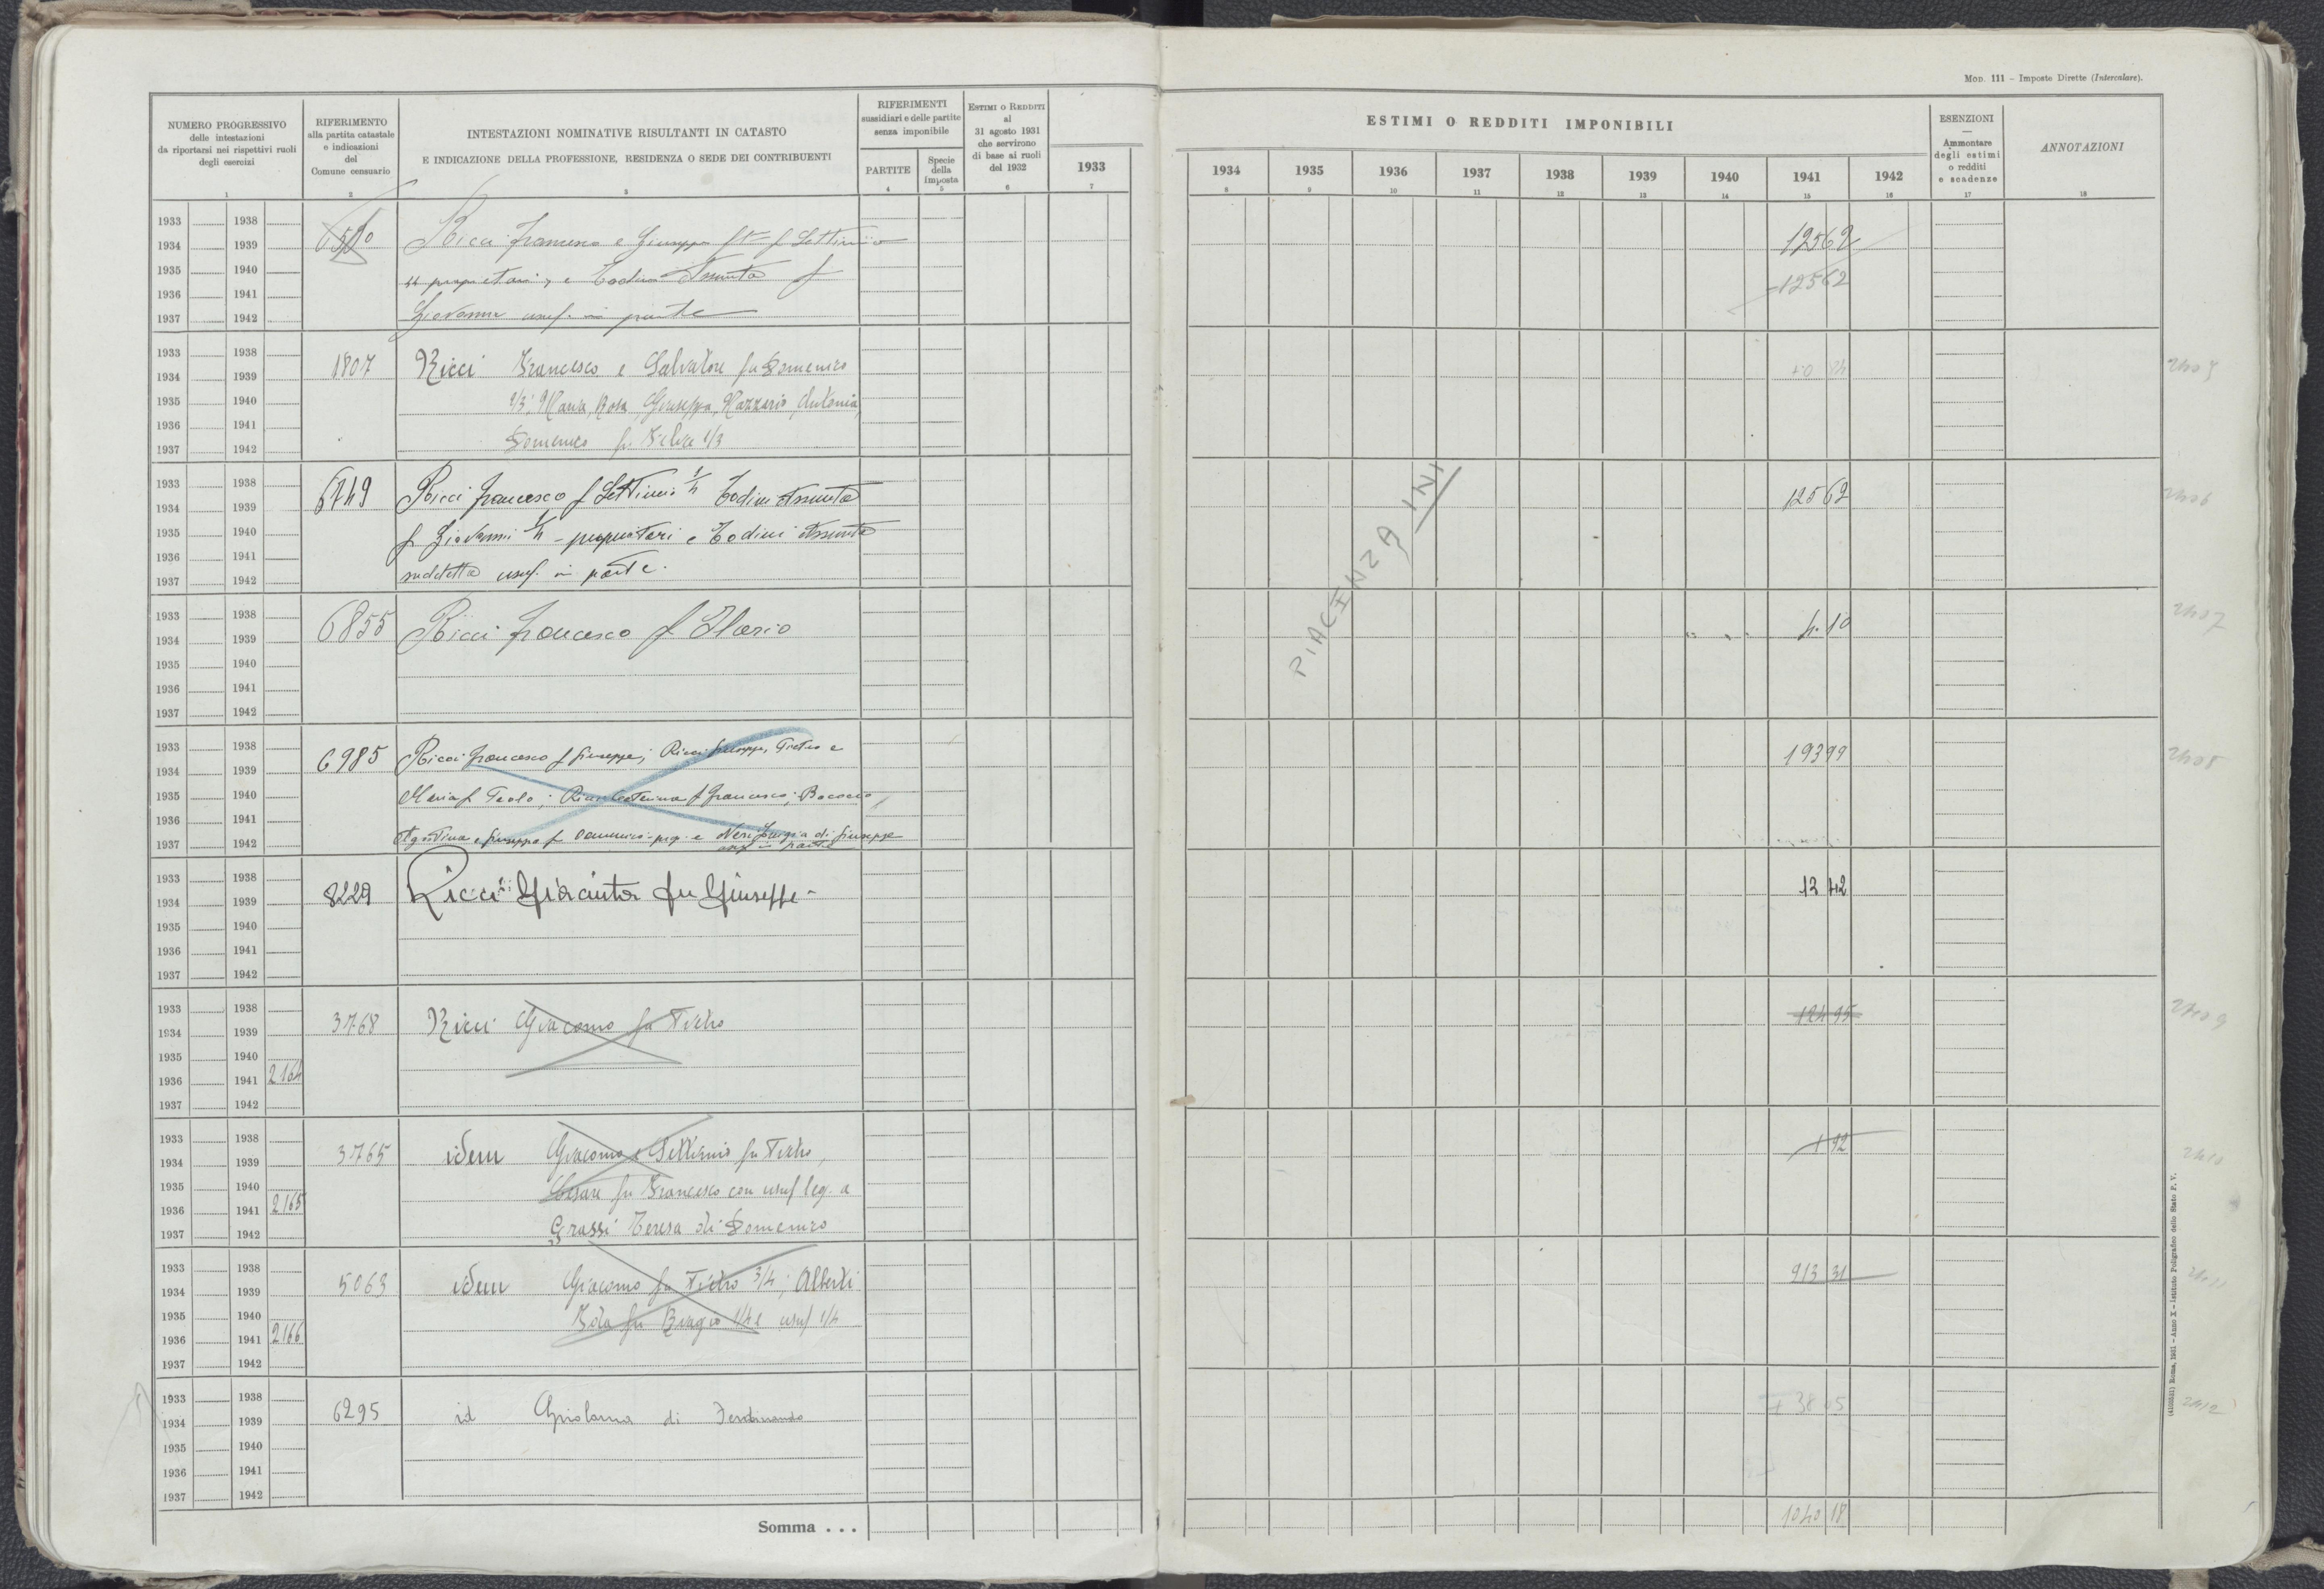 Mod. 111 - Imposte Dirette (Intercalare).
NUMERO PROGRESSIVO
delle intestazioni
da riportarsi nei rispettivi ruoli
degli esercizi
1
RIFERIMENTO
alla partita catastale
e indicazioni
del
Comune censuario
2
INTESTAZIONI NOMINATIVE RISULTANTI IN CATASTO
E INDICAZIONE DELLA PROFESSIONE, RESIDENZA O SEDE DEI CONTRIBUENTI
3
RIFERIMENTI
sussidiari e delle partite
senza imponibile
PARTITE
4
Specie
della
imposta
5
Estimi o Redditi
al
31 agosto 1931
che servirono
di base ai ruoli
del 1932
6
1933
7
ESTIMI O REDDITI IMPONIBILI
1934 1935 1936 1937 1938 1939 1940 1941 1942
8 9 10 11 12 13 14 15 16
ESENZIONI
—
Ammontare
degli estimi
o redditi
e scadenze
17
ANNOTAZIONI
18
1933 1938
1934 1939 Ricci Francesco e Giuseppe f Settimio 12562
1935 1940
proprietari, e Todini Assunta f 12562
1936 1941
1937 1942 Giovanni usuf. in parte
1933 1938
1934 1939 1807 Ricci Francesco e Salvatore fu Domenico
1935 1940 2/3; Maria, Rosa, Giuseppa, Nazzario, Antonia,
1936 1941
1937 1942 Domenico fu Felice 1/3
1933 1938
1934 1939 6749 Ricci Francesco f Settimio 1/2 Todini Assunta 12562 2406
1935 1940 f Giovanni 1/2 - proprietari e Todini Assunta
1936 1941
1937 1942 suddetta usuf. in parte.
PIACENZA INI
1933 1938
1934 1939 6855 Ricci Francesco f Ilario 4.10 2407
1935 1940
1936 1941
1937 1942
1933 1938
1934 1939 6985 Ricci Francesco f Giuseppe; Ricci Giuseppe, Pietro e 19399 2408
1935 1940 Maria f Paolo; Ricci Caterina f Francesco;
1936 1941
1937 1942 Agostina e Giuseppe f Domenico - prop. e Neri Luigia di Giuseppe
usuf in parte
1933 1938
1934 1939 8229 Ricci Giacinta fu Giuseppe 13 42
1935 1940
1936 1941
1937 1942
1933 1938
1934 1939 3768 Ricci Giacomo fu Pietro 124 95 2409
1935 1940
1936 1941 2164
1937 1942
1933 1938
1934 1939 3765 idem Giacomo e Settimio fu Pietro, 1 92 2410
1935 1940 Cesare fu Francesco con usuf leg. a
1936 1941 2165
1937 1942 Grassi Teresa di Domenico
1933 1938
1934 1939 5063 idem Giacomo fu Pietro 3/4; Alberti 913 31 2411
1935 1940 Ida fu Biagio 1/4 e usuf 1/4
1936 1941 2166
1937 1942
1933 1938
1934 1939 6295 id Girolama di Ferdinando 38 05 2412
1935 1940
1936 1941
1937 1942
Somma . . . 1040 18
(4105841) Roma, 1931 - Anno X - Istituto Poligrafico dello Stato P. V.